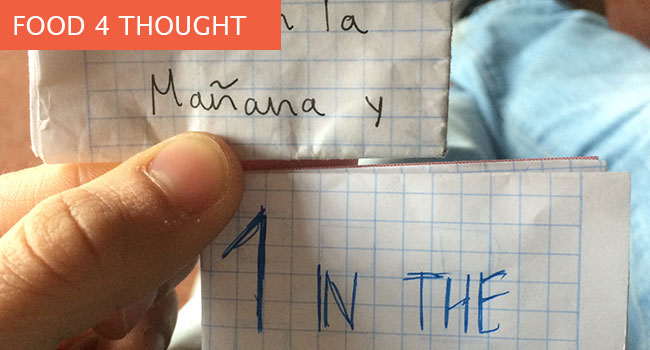 FOOD 4 THOUGHT
la
Mañana y
1 IN THE